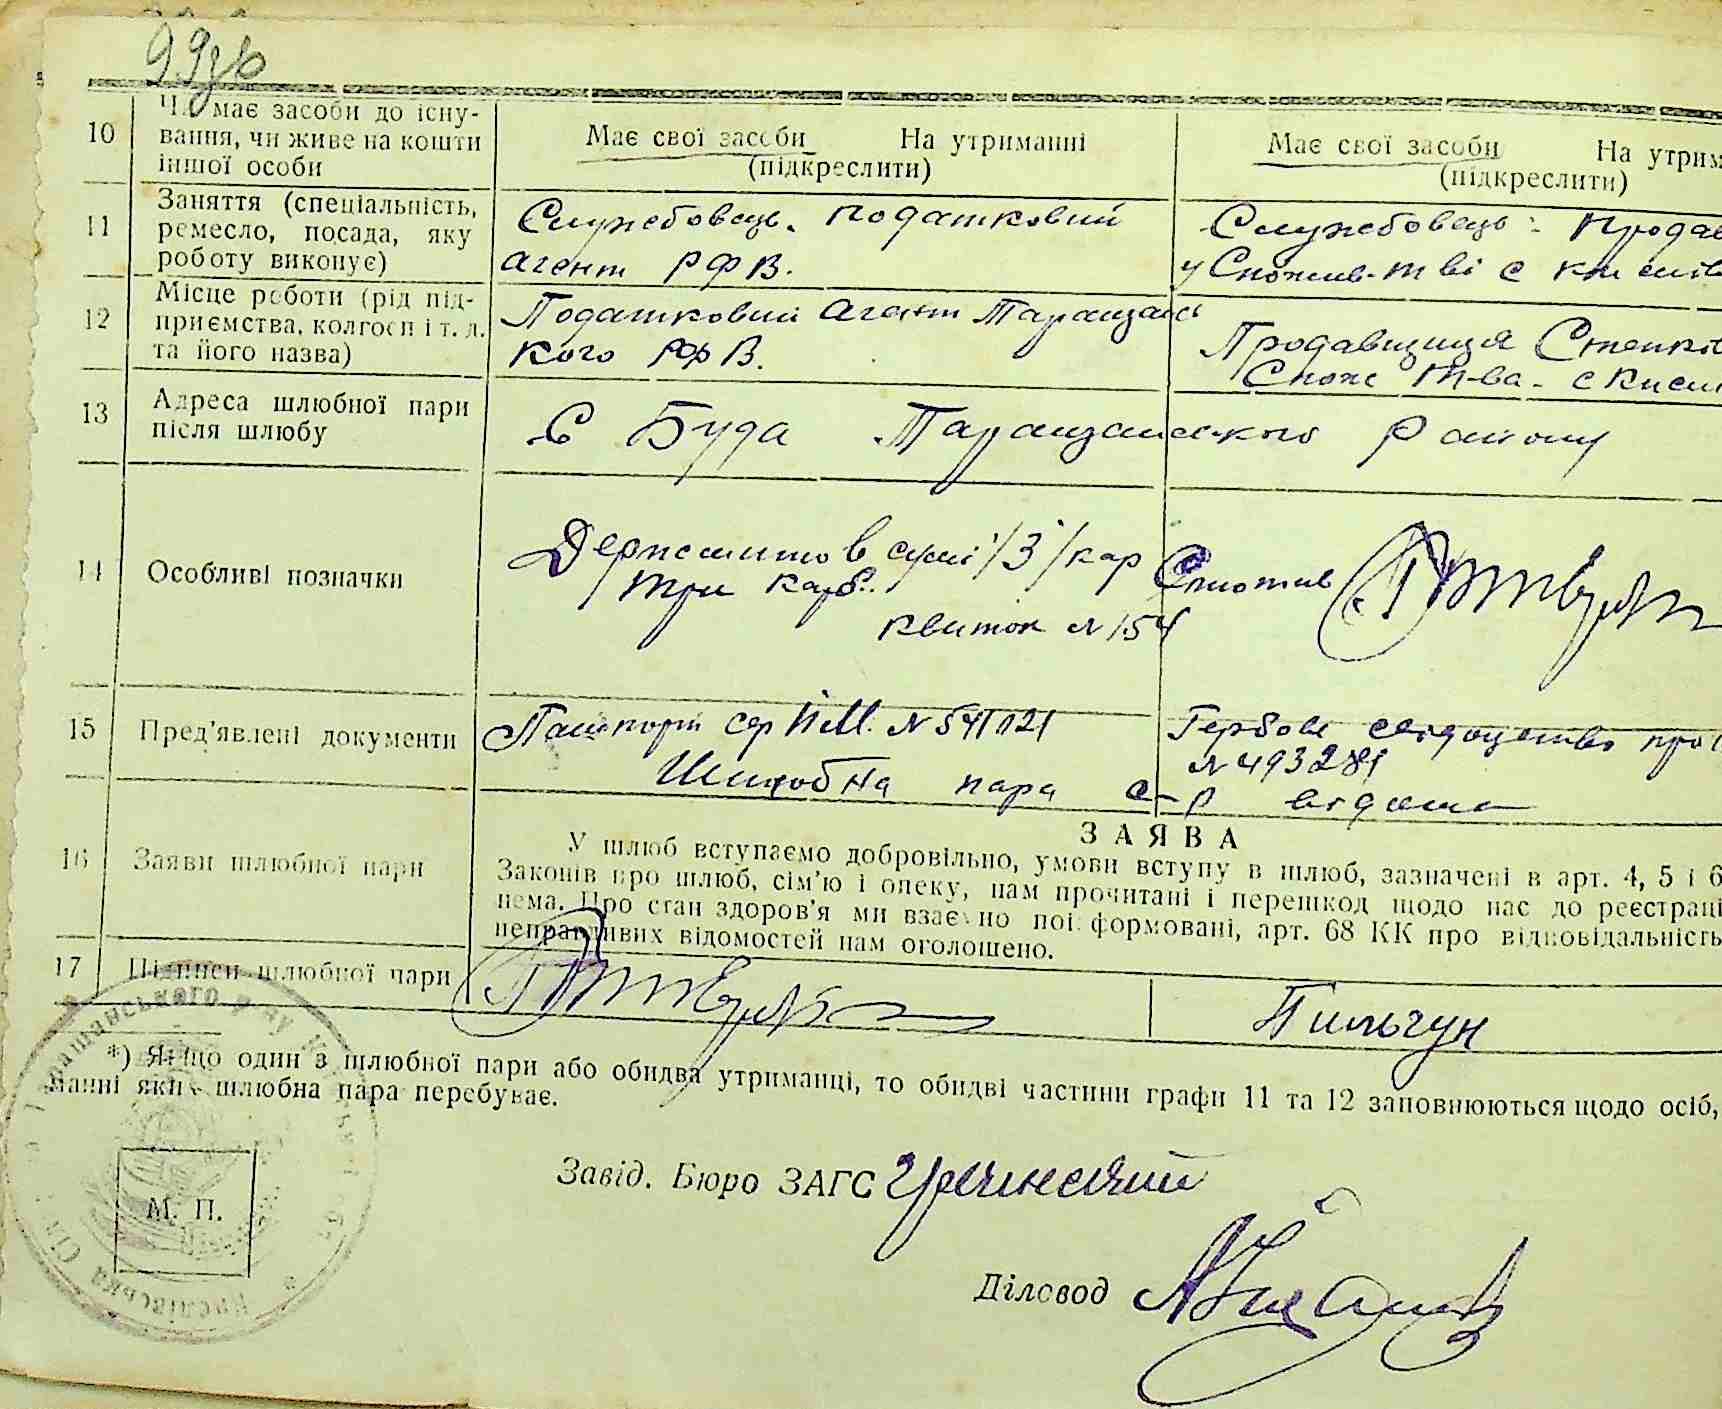 99зв
10 Чи має засоби до існу-
вання, чи живе на кошти
іншої особи
Має свої засоби На утриманні
(підкреслити)
Має свої засоби На утрим
(підкреслити)
11 Заняття (спеціальність,
ремесло, посада, яку
роботу виконує)
Службовець. податковий
агент РФВ.
Службовець: Продав
у Спожив-тві с
12 Місце роботи (рід під-
приємства, колгосп і т. д.
та його назва)
Податковий агент Таращанс
кого РФВ.
Продавщиця
Спож т-ва - с Кисл
13 Адреса шлюбної пари
після шлюбу
с Буда Таращанского району
14 Особливі позначки
Держмито в сумі /3/ кар
три карб.
квиток № 154
15 Пред'явлені документи
Пашпорт сер № 541121
Шлюбна пара с-р видана
Гербове свідоцтво про
№ 493281
16 Заяви шлюбної пари
ЗАЯВА
У шлюб вступаємо добровільно, умови вступу в шлюб, зазначені в арт. 4, 5 і 6
Законів про шлюб, сім'ю і опеку, нам прочитані і перешкод щодо нас до реєстрації
нема. Про стан здоров'я ми взаємно поінформовані, арт. 68 КК про відповідальність
неправдивих відомостей нам оголошено.
17 Підписи шлюбної пари
Пильчун
*) Якщо один з шлюбної пари або обидва утриманці, то обидві частини графи 11 та 12 заповнюються щодо осіб,
манні яких шлюбна пара перебуває.
Завід. Бюро ЗАГС
М. П.
Діловод